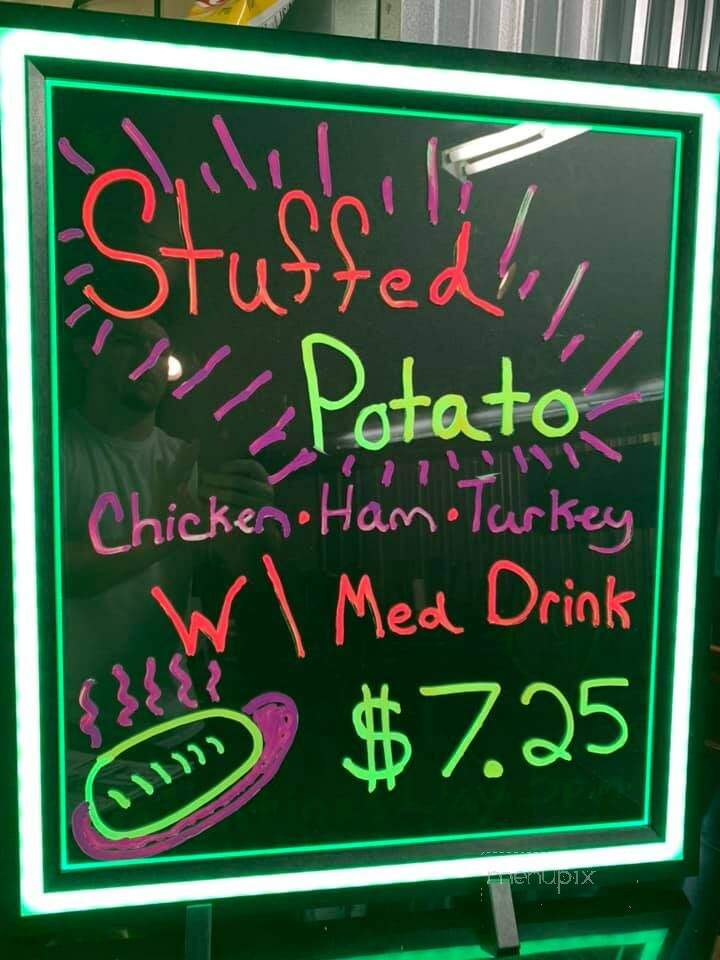 Stuffed
Potato
Chicken • Ham • Turkey
W\ Med Drink
$7.25
menupix